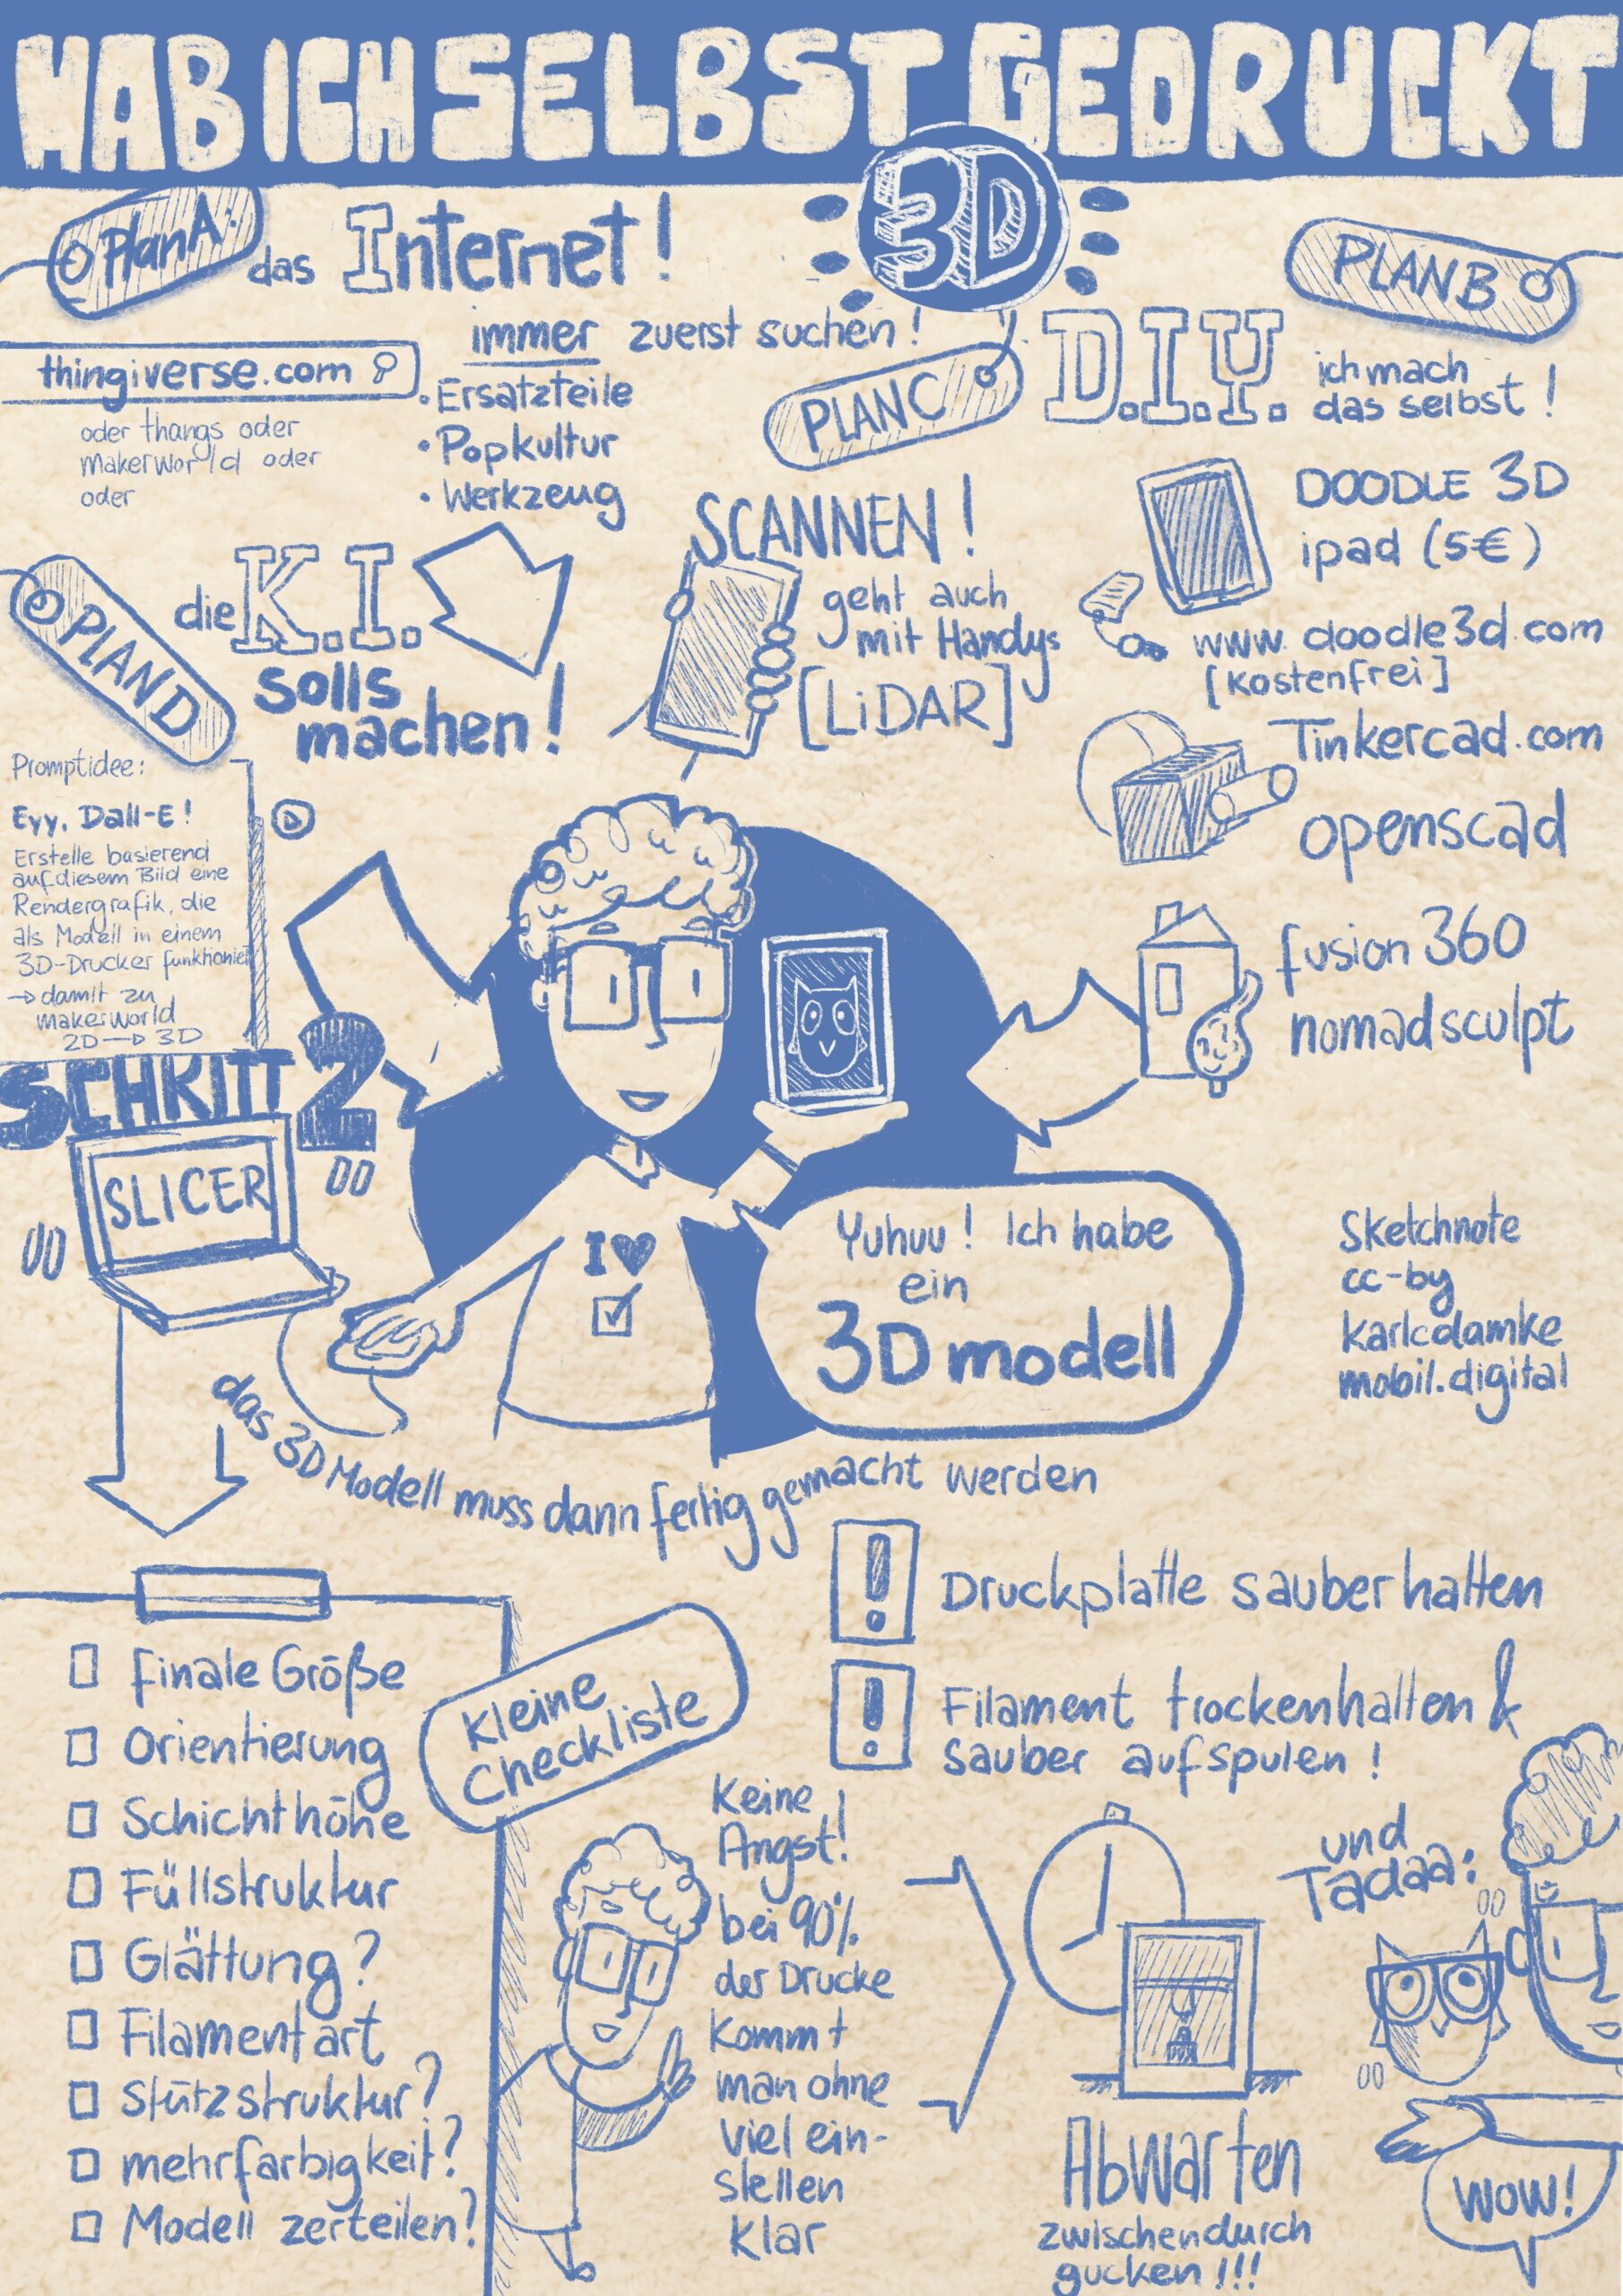 HAB ICH SELBST GEDRUCKT
3D
Plan A:
das Internet!
immer zuerst suchen!
thingiverse.com
oder thangs oder
makerworld oder
oder
• Ersatzteile
• Popkultur
• Werkzeug
PLAN B
D.I.Y.
ich mach
das selbst!
DOODLE 3D
ipad (5€)
www.doodle3d.com
[Kostenfrei]
Tinkercad.com
openscad
fusion 360
nomadsculpt
PLAN C
SCANNEN!
geht auch
mit Handys
[LiDAR]
PLAN D
die K.I.
solls
machen!
Promptidee:
Eyy, Dall-E!
Erstelle basierend
auf diesem Bild eine
Rendergrafik, die
als Modell in einem
3D-Drucker funktioniert
→ damit zu
makerworld
2D → 3D
I ♥ ☑
Yuhuu! Ich habe
ein
3D modell
Sketchnote
cc-by
karlcdamke
mobil.digital
SCHRITT 2
SLICER
das 3D Modell muss dann fertig gemacht werden
Kleine
Checkliste
☐ finale Größe
☐ Orientierung
☐ Schichthöhe
☐ Füllstruktur
☐ Glättung?
☐ Filamentart
☐ Stützstruktur?
☐ mehrfarbigkeit?
☐ Modell zerteilen?
! Druckplatte sauber halten
! Filament trocken halten &
sauber aufspulen!
Keine
Angst!
bei 90%
der Drucke
kommt
man ohne
viel ein-
stellen
klar
Abwarten
zwischendurch
gucken!!!
und
Tadaa:
WOW!